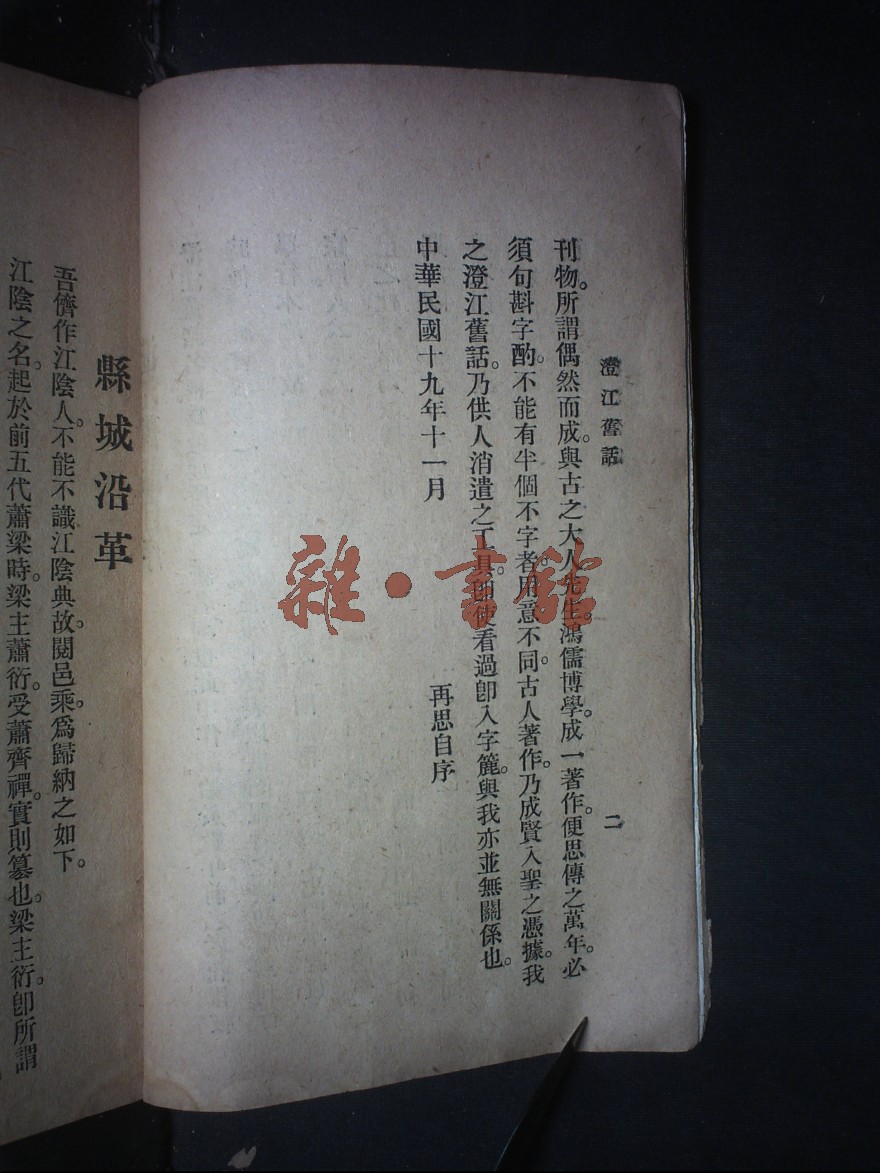 澄江舊話
二
刊物。所謂偶然而成。與古之大人先生。鴻儒博學。成一著作。便思傳之萬年。必
須句斟字酌。不能有半個不字者。用意不同。古人著作。乃成賢入聖之憑據。我
之澄江舊話。乃供人消遣之工具。卽使看過卽入字簏。與我亦並無關係也。
中華民國十九年十一月
再思自序
縣城沿革
吾儕作江陰人。不能不識江陰典故。閱邑乘。爲歸納之如下。
江陰之名。起於前五代蕭梁時。梁主蕭衍。受蕭齊禪。實則篡也。梁主衍。卽所謂
雜·書館